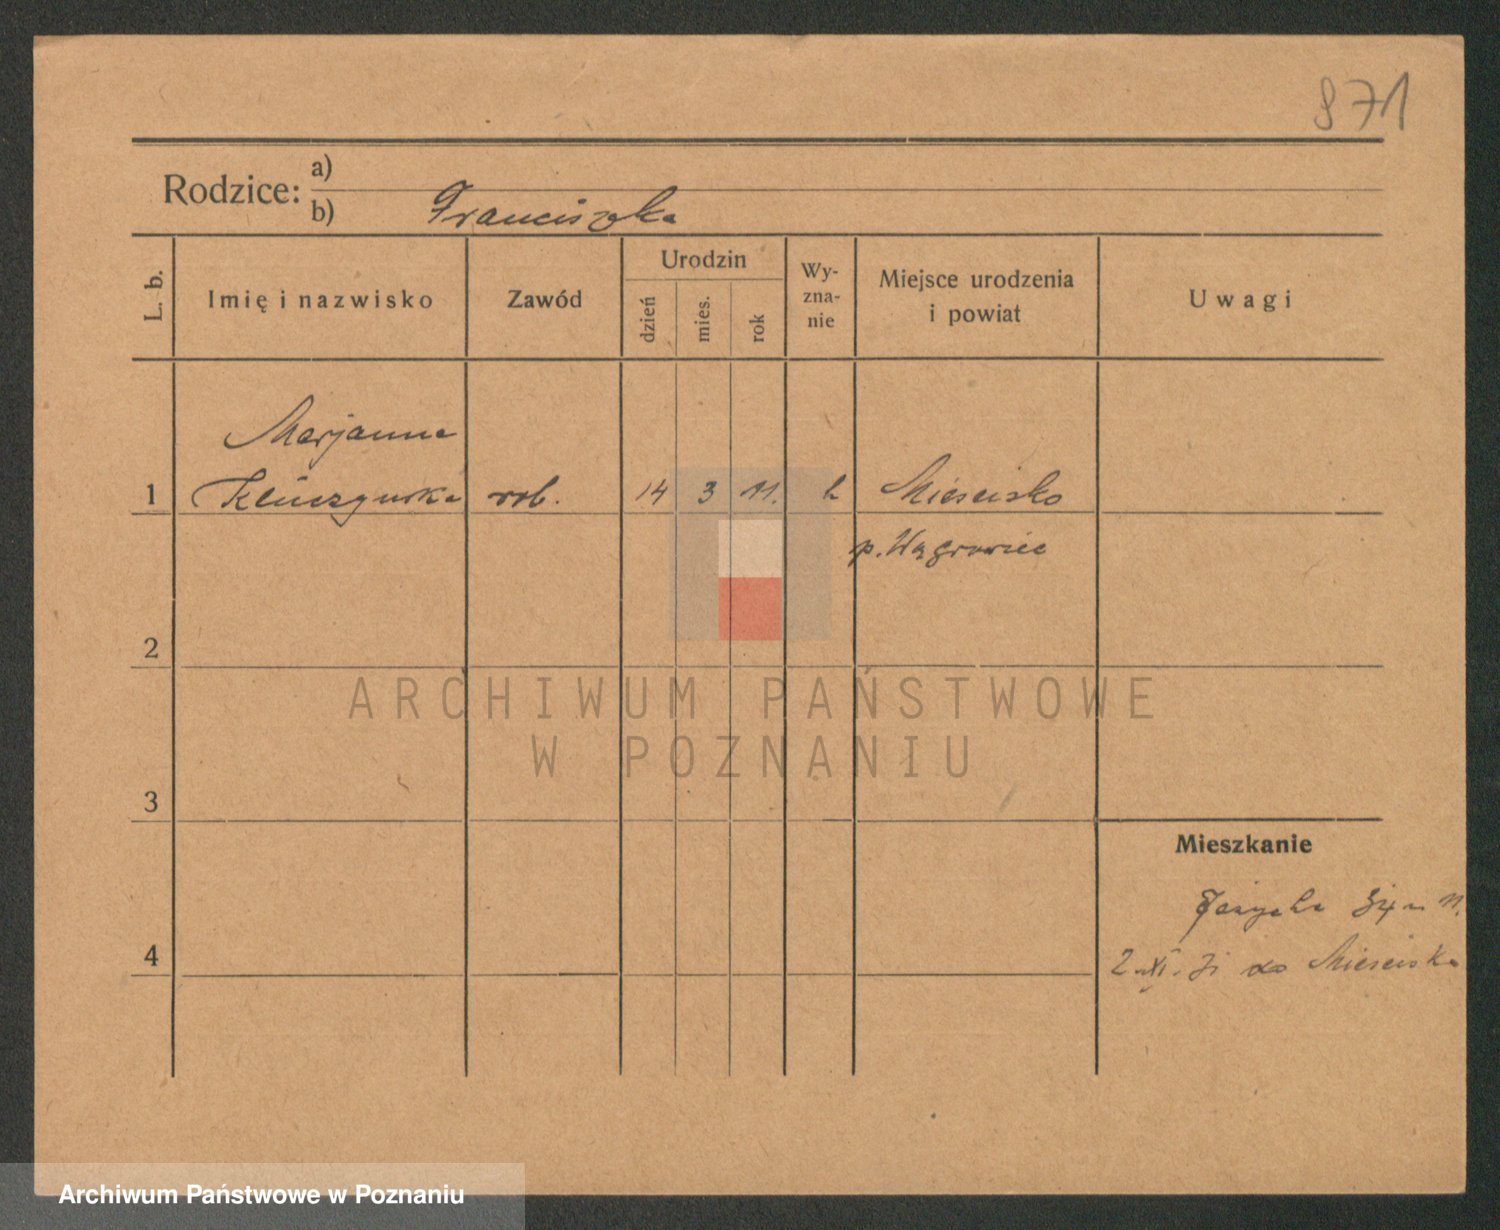 871
Rodzice: a)
b) Franciszka
L. b.
Imię i nazwisko
Zawód
Urodzin
dzień
mies.
rok
Wy-
zna-
nie
Miejsce urodzenia
i powiat
Uwagi
Marjanna
1 rob. 14 3 11. Mieścisko
p. Wągrowiec
2
ARCHIWUM PAŃSTWOWE
W POZNANIU
3
Mieszkanie
4
2. XI. do Mieściska
Archiwum Państwowe w Poznaniu